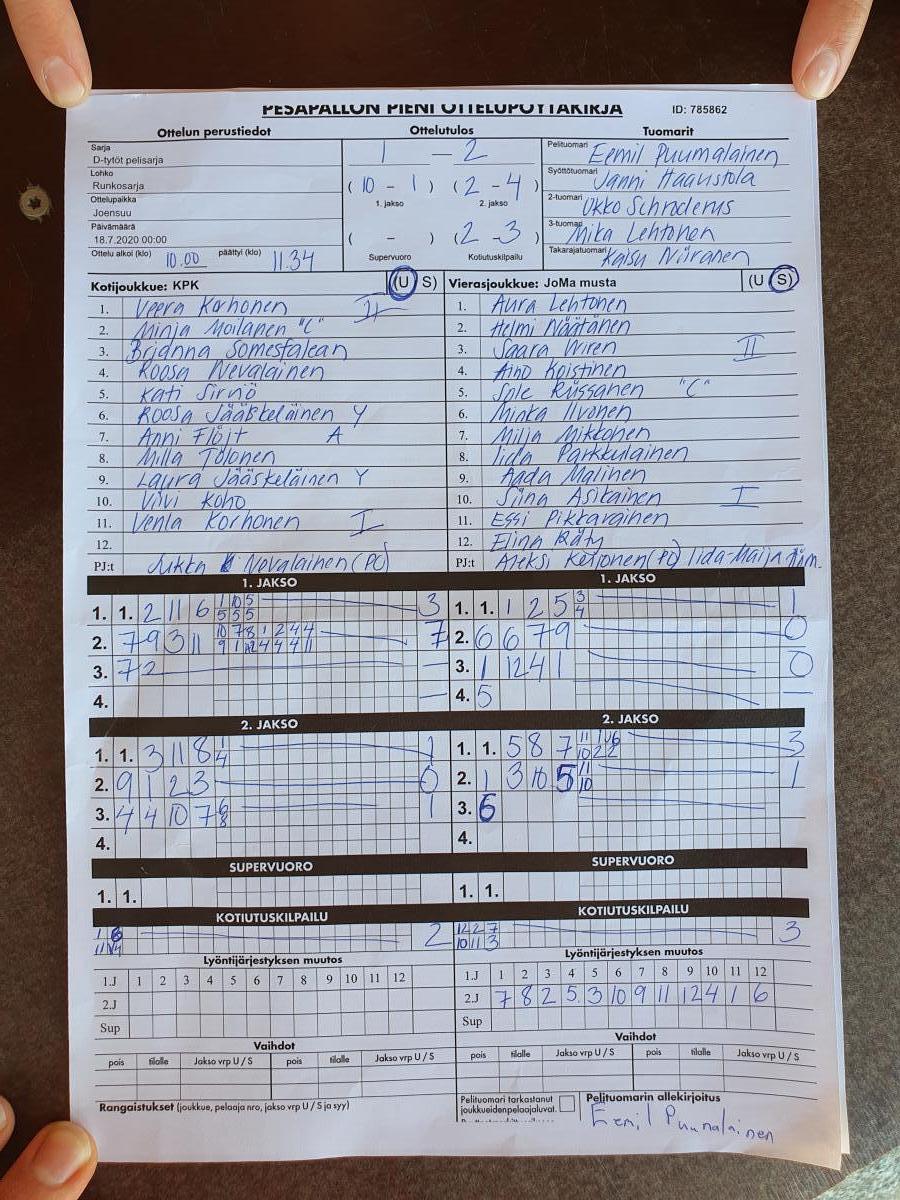 PESÄPALLON PIENI OTTELUPÖYTÄKIRJA ID: 785862
Ottelun perustiedot Ottelutulos Tuomarit
Sarja
D-tytöt pelisarja
Lohko
Runkosarja
Ottelupaikka
Joensuu
Päivämäärä
18.7.2020 00:00
Ottelu alkoi (klo) 10.00 päättyi (klo) 11.34
1 — 2
( 10 - 1 ) ( 2 - 4 )
1. jakso 2. jakso
( - ) ( 2 - 3 )
Supervuoro Kotiutuskilpailu
Pelituomari Eemil Puumalainen
Syöttötuomari Janni Haavstola
2-tuomari Okko Schroderus
3-tuomari Mika Lehtonen
Takarajatuomari Kaisu Niiranen
Kotijoukkue: KPK (U S)
1. Veera Korhonen II
2. Minja Moilanen "C"
3. Brianna Somesfalean
4. Roosa Nevalainen
5. Kati Sirniö
6. Roosa Jääskeläinen Y
7. Anni Flöjt A
8. Milla Tolonen
9. Laura Jääskeläinen Y
10. Viivi Koho
11. Venla Korhonen I
12.
PJ:t Jukka Nevalainen (PC)
Vierasjoukkue: JoMa musta (U S)
1. Aura Lehtonen
2. Helmi Näätänen
3. Saara Wiren II
4. Aino Koistinen
5. Sole Russanen "C"
6. Minka Ilvonen
7. Milja Mikkonen
8. Iida Parkkulainen
9. Aada Malinen
10. Siina Asikainen I
11. Essi Pikkarainen
12. Elina Räty
PJ:t Aleksi Keijonen (PC) Iida-Maija
1. JAKSO
1. 1. 2 11 6 1 10 5 3
5 5 5
2. 7 9 3 11 10 7 8 1 2 4 4 7
9 1 12 4 4 4 11
3. 7 2 —
4. —
1. JAKSO
1. 1. 1 2 5 3 1
4
2. 6 6 7 9 0
3. 1 12 4 1 0
4. 5 —
2. JAKSO
1. 1. 3 11 8 1 1
4
2. 9 1 2 3 0
3. 4 4 10 7 6 1
8
4.
2. JAKSO
1. 1. 5 8 7 11 1 6 3
10 2 2
2. 1 3 10 5 11 1
10
3. 6
4.
SUPERVUORO
1. 1.
SUPERVUORO
1. 1.
KOTIUTUSKILPAILU
2
KOTIUTUSKILPAILU
12 2 7 3
10 11 3
Lyöntijärjestyksen muutos
1.J 1 2 3 4 5 6 7 8 9 10 11 12
2.J
Sup
Lyöntijärjestyksen muutos
1.J 1 2 3 4 5 6 7 8 9 10 11 12
2.J 7 8 2 5 3 10 9 11 12 4 1 6
Sup
Vaihdot
pois tilalle Jakso vrp U / S pois tilalle Jakso vrp U / S
Vaihdot
pois tilalle Jakso vrp U / S pois tilalle Jakso vrp U / S
Rangaistukset (joukkue, pelaaja nro, jakso vrp U / S ja syy)
Pelituomari tarkastanut
joukkueidenpelaajaluvat.
Pelituomarin allekirjoitus
Eemil Puumalainen